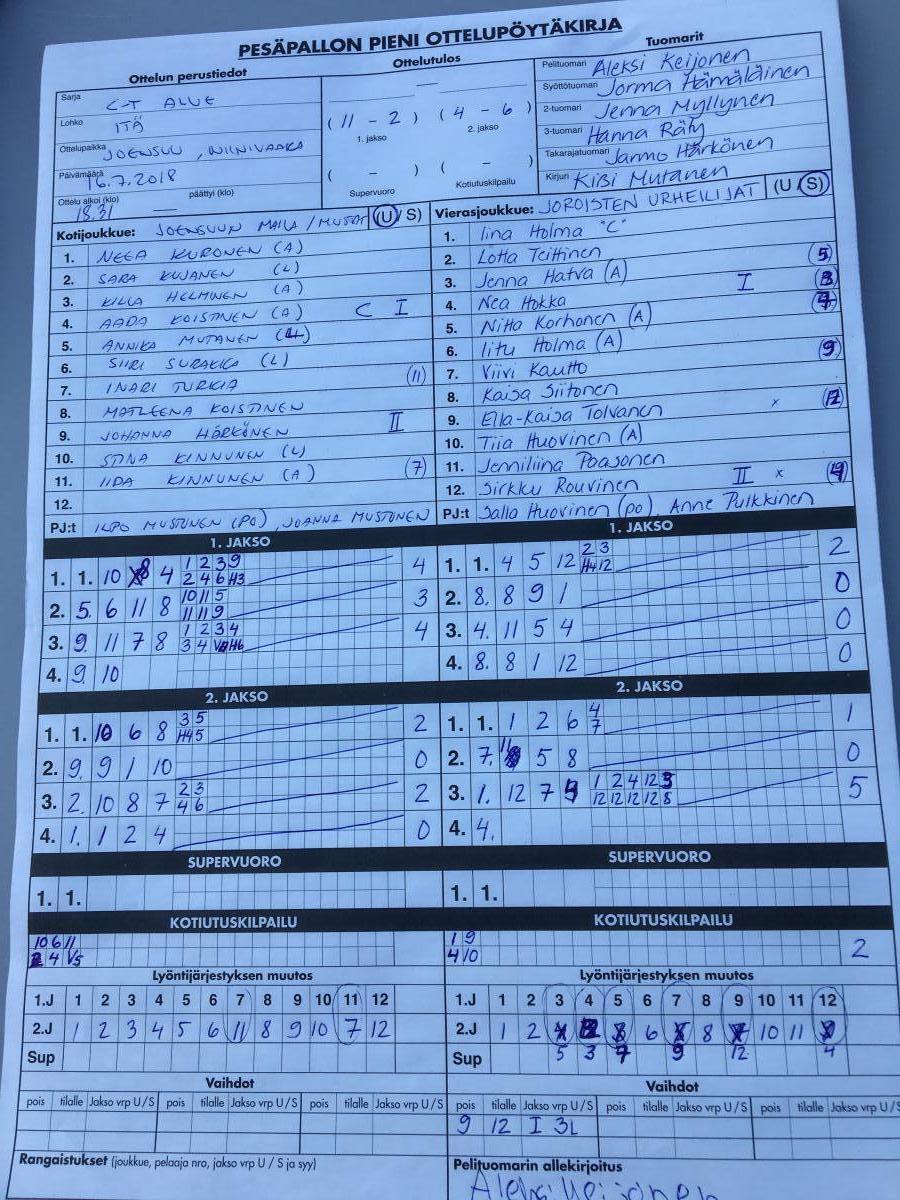 PESÄPALLON PIENI OTTELUPÖYTÄKIRJA
Ottelun perustiedot
Sarja C-T ALUE
Lohko ITÄ
Ottelupaikka JOENSUU, NIINIVAARA
Päivämäärä 16.7.2018
Ottelu alkoi (klo) päättyi (klo)
18.31 —
Ottelutulos
—
(11 - 2) (4 - 6)
1. jakso 2. jakso
( - ) ( - )
Supervuoro Kotiutuskilpailu
Tuomarit
Pelituomari Aleksi Keijonen
Syöttötuomari Jorma Hämäläinen
2-tuomari Jenna Myllynen
3-tuomari Hanna Räty
Takarajatuomari Jarmo Härkönen
Kirjuri Kisi Mutanen
Kotijoukkue: JOENSUUN MAILA / MUSTAT (U/S)
1. NEEA KURONEN (A)
2. SARA KUJANEN (L)
3. HELMINEN (A)
4. AADA KOISTINEN (A) C I
5. ANNIKA MUTANEN (L)
6. SIIRI SURAKKA (L)
7. INARI TURKIA (11)
8. MATLEENA KOISTINEN
9. JOHANNA HÄRKÖNEN II
10. STINA KINNUNEN (L)
11. IIDA KINNUNEN (A) (7)
12.
PJ:t ILPO MUSTONEN (PO), JOANNA MUSTONEN
Vierasjoukkue: JOROISTEN URHEILIJAT (U/S)
1. Iina Holma "C"
2. Lotta Teittinen
3. Jenna Hatva (A) I (5)
4. Nea Hokka (3)
5. Nitta Korhonen (A) (7)
6. Iitu Holma (A)
7. Viivi Kautto (9)
8. Kaisa Siitonen
9. Ella-Kaisa Tolvanen x (12)
10. Tiia Huovinen (A)
11. Jenniliina Poasonen
12. Sirkku Rouvinen II x (4)
PJ:t Salla Huovinen (po), Anne Pulkkinen
1. JAKSO
1. 1. 10 8 4 1 2 3 9 4
2 4 6 H3
2. 5. 6 11 8 10 11 5 3
11 11 9
3. 9. 11 7 8 1 2 3 4 4
3 4 H6
4. 9. 10
1. JAKSO
1. 1. 4 5 12 2 3 2
H4 12
2. 8. 8 9 1 0
3. 4. 11 5 4 0
4. 8. 8 1 12 0
2. JAKSO
1. 1. 10 6 8 3 5 2
H4 5
2. 9. 9 1 10 0
3. 2. 10 8 7 2 3 2
4 6
4. 1. 1 2 4 0
2. JAKSO
1. 1. 1 2 6 4 1
7
2. 7. 11 5 8 0
3. 1. 12 7 9 1 2 4 12 3 5
12 12 12 12 8
4. 4.
SUPERVUORO
1. 1.
SUPERVUORO
1. 1.
KOTIUTUSKILPAILU
10 6 11
2 4 V5
KOTIUTUSKILPAILU
1 9 2
4 10
Lyöntijärjestyksen muutos
1.J 1 2 3 4 5 6 7 8 9 10 11 12
2.J 1 2 3 4 5 6 11 8 9 10 7 12
Sup
Lyöntijärjestyksen muutos
1.J 1 2 3 4 5 6 7 8 9 10 11 12
2.J 1 2 6 8 10 11
Sup 5 3 7 9 12 4
Vaihdot
pois tilalle Jakso vrp U/S pois tilalle Jakso vrp U/S pois tilalle Jakso vrp U/S
Vaihdot
pois tilalle Jakso vrp U/S pois tilalle Jakso vrp U/S pois tilalle Jakso vrp U/S
9 12 I 3L
Rangaistukset (joukkue, pelaaja nro, jakso vrp U / S ja syy)
Pelituomarin allekirjoitus
Aleksi Keijonen